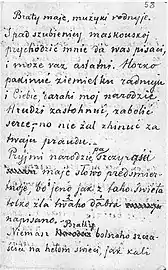 58
Braty maje, mużyki rodnyje.
Z pad szubienicy maskouskoj
prychodzić mnie da was pisaci,
i może raz astatni. Horko
pakinuć ziamielku radnuju
i Ciebie darahi moj narodzie.
Hrudzi zastohnuć, zabolić
serce, no nie żal zhinuć za
twaju praudu.
Pryjmi narodzie pa szczyrosti
maje słowo predśmier-
tnoje, bo jeno jak z taho świeta
tolko dla twaho dabra
napisano.
Bratcy
Niemasz bolszaho szcza-
scia na hetom świeci, jak kali